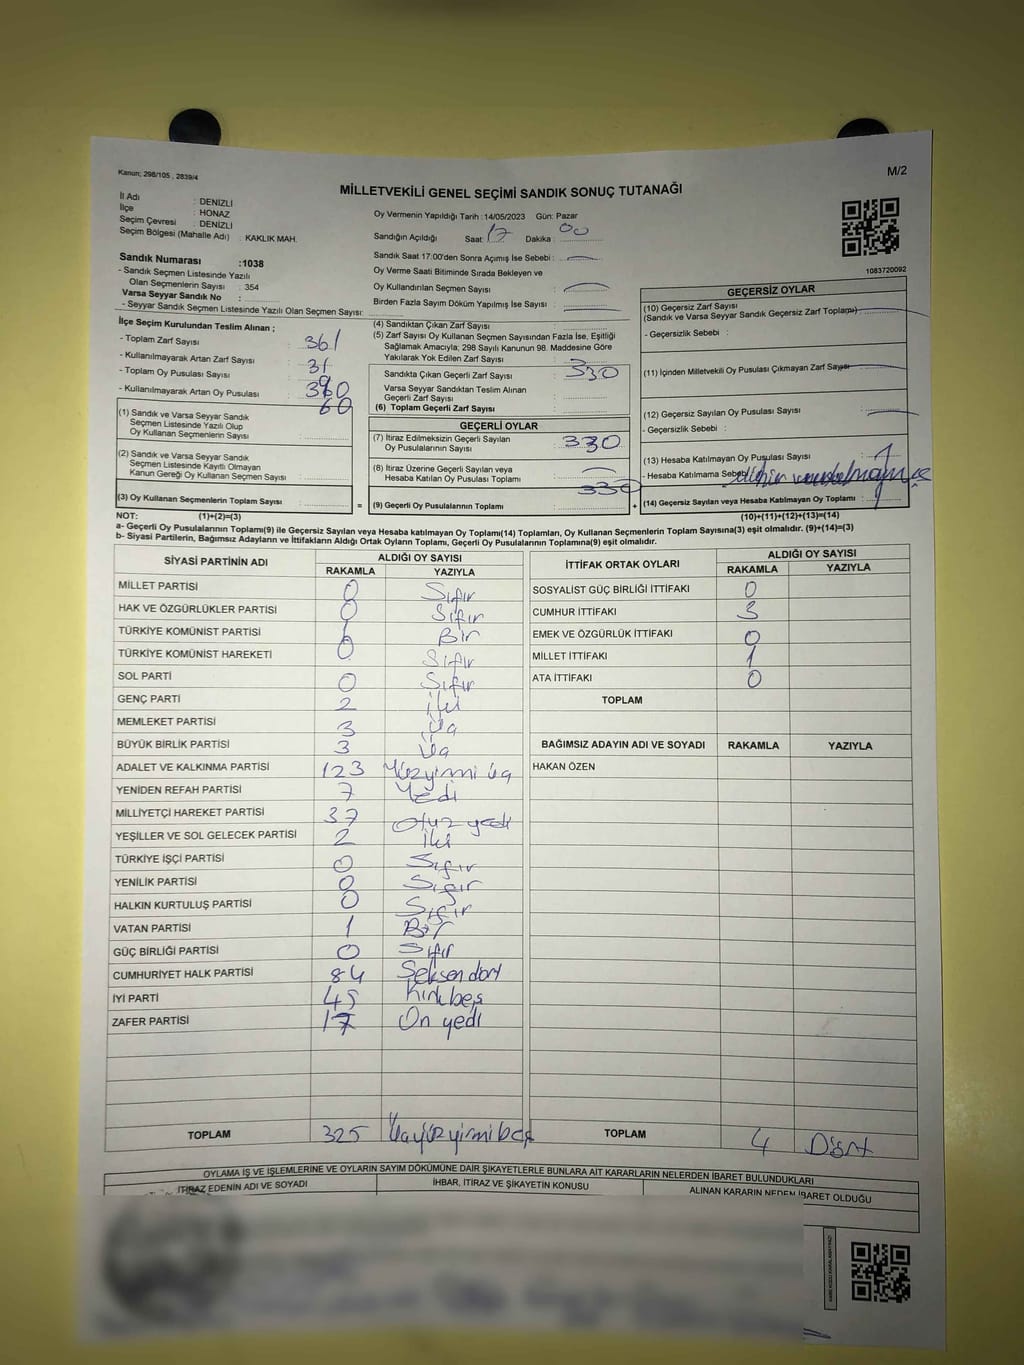 Kanun; 298/105 , 2839/4
M/2
MİLLETVEKİLİ GENEL SEÇİMİ SANDIK SONUÇ TUTANAĞI
İl Adı : DENİZLİ
İlçe : HONAZ
Seçim Çevresi : DENİZLİ
Seçim Bölgesi (Mahalle Adı) : KAKLIK MAH.
Oy Vermenin Yapıldığı Tarih :14/05/2023 Gün: Pazar
Sandığın Açıldığı Saat: 17 Dakika : 00
Sandık Saat 17:00'den Sonra Açımış İse Sebebi :
Oy Verme Saati Bitiminde Sırada Bekleyen ve
Oy Kullandırılan Seçmen Sayısı :
Birden Fazla Sayım Döküm Yapılmış İse Sayısı :
1083720092
Sandık Numarası :1038
- Sandık Seçmen Listesinde Yazılı
Olan Seçmenlerin Sayısı : 354
Varsa Seyyar Sandık No :
- Seyyar Sandık Seçmen Listesinde Yazılı Olan Seçmen Sayısı:
İlçe Seçim Kurulundan Teslim Alınan ;
- Toplam Zarf Sayısı : 361
- Kullanılmayarak Artan Zarf Sayısı : 31
- Toplam Oy Pusulası Sayısı :
- Kullanılmayarak Artan Oy Pusulası : 60
(1) Sandık ve Varsa Seyyar Sandık
Seçmen Listesinde Yazılı Olup
Oy Kullanan Seçmenlerin Sayısı :
(2) Sandık ve Varsa Seyyar Sandık
Seçmen Listesinde Kayıtlı Olmayan
Kanun Gereği Oy Kullanan Seçmen Sayısı :
(3) Oy Kullanan Seçmenlerin Toplam Sayısı :
(4) Sandıktan Çıkan Zarf Sayısı :
(5) Zarf Sayısı Oy Kullanan Seçmen Sayısından Fazla İse, Eşitliği
Sağlamak Amacıyla; 298 Sayılı Kanunun 98. Maddesine Göre
Yakılarak Yok Edilen Zarf Sayısı :
Sandıkta Çıkan Geçerli Zarf Sayısı : 330
Varsa Seyyar Sandıktan Teslim Alınan
Geçerli Zarf Sayısı :
(6) Toplam Geçerli Zarf Sayısı :
GEÇERLİ OYLAR
(7) İtiraz Edilmeksizin Geçerli Sayılan
Oy Pusulasının Sayısı : 330
(8) İtiraz Üzerine Geçerli Sayılan veya
Hesaba Katılan Oy Pusulası Toplamı :
= (9) Geçerli Oy Pusulalarının Toplamı : 330
GEÇERSİZ OYLAR
(10) Geçersiz Zarf Sayısı
(Sandık ve Varsa Seyyar Sandık Geçersiz Zarf Toplamı) :
- Geçersizlik Sebebi :
(11) İçinden Milletvekili Oy Pusulası Çıkmayan Zarf Sayısı
(12) Geçersiz Sayılan Oy Pusulası Sayısı :
- Geçersizlik Sebebi :
(13) Hesaba Katılmayan Oy Pusulası Sayısı : 1
- Hesaba Katılmama Sebebi
+ (14) Geçersiz Sayılan veya Hesaba Katılmayan Oy Toplamı :
NOT: (1)+(2)=(3)
(10)+(11)+(12)+(13)=(14)
a- Geçerli Oy Pusulalarının Toplamı(9) ile Geçersiz Sayılan veya Hesaba katılmayan Oy Toplamı(14) Toplamları, Oy Kullanan Seçmenlerin Toplam Sayısına(3) eşit olmalıdır. (9)+(14)=(3)
b- Siyasi Partilerin, Bağımsız Adayların ve İttifakların Aldığı Ortak Oyların Toplamı, Geçerli Oy Pusulalarının Toplamına(9) eşit olmalıdır.
SİYASİ PARTİNİN ADI ALDIĞI OY SAYISI
RAKAMLA YAZIYLA
MİLLET PARTİSİ 0 Sıfır
HAK VE ÖZGÜRLÜKLER PARTİSİ 0 Sıfır
TÜRKİYE KOMÜNİST PARTİSİ 1 Bir
TÜRKİYE KOMÜNİST HAREKETİ 0 Sıfır
SOL PARTİ 0 Sıfır
GENÇ PARTİ 2 İki
MEMLEKET PARTİSİ 3 Üç
BÜYÜK BİRLİK PARTİSİ 3 Üç
ADALET VE KALKINMA PARTİSİ 123 Yüzyirmi üç
YENİDEN REFAH PARTİSİ 7 Yedi
MİLLİYETÇİ HAREKET PARTİSİ 37 Otuz yedi
YEŞİLLER VE SOL GELECEK PARTİSİ 2 İki
TÜRKİYE İŞÇİ PARTİSİ 0 Sıfır
YENİLİK PARTİSİ 0 Sıfır
HALKIN KURTULUŞ PARTİSİ 0 Sıfır
VATAN PARTİSİ 1 Bir
GÜÇ BİRLİĞİ PARTİSİ 0 Sıfır
CUMHURİYET HALK PARTİSİ 84 Seksen dört
İYİ PARTİ 45 Kırkbeş
ZAFER PARTİSİ 17 On yedi
TOPLAM 325 Üçyüzyirmibeş
İTTİFAK ORTAK OYLARI ALDIĞI OY SAYISI
RAKAMLA YAZIYLA
SOSYALİST GÜÇ BİRLİĞİ İTTİFAKI 0
CUMHUR İTTİFAKI 3
EMEK VE ÖZGÜRLÜK İTTİFAKI 0
MİLLET İTTİFAKI 1
ATA İTTİFAKI 0
TOPLAM
BAĞIMSIZ ADAYIN ADI VE SOYADI RAKAMLA YAZIYLA
HAKAN ÖZEN
TOPLAM 4 Dört
OYLAMA İŞ VE İŞLEMLERİNE VE OYLARIN SAYIM DÖKÜMÜNE DAİR ŞİKAYETLERLE BUNLARA AİT KARARLARIN NELERDEN İBARET BULUNDUKLARI
İTİRAZ EDENİN ADI VE SOYADI İHBAR, İTİRAZ VE ŞİKAYETİN KONUSU ALINAN KARARIN NEDEN İBARET OLDUĞU